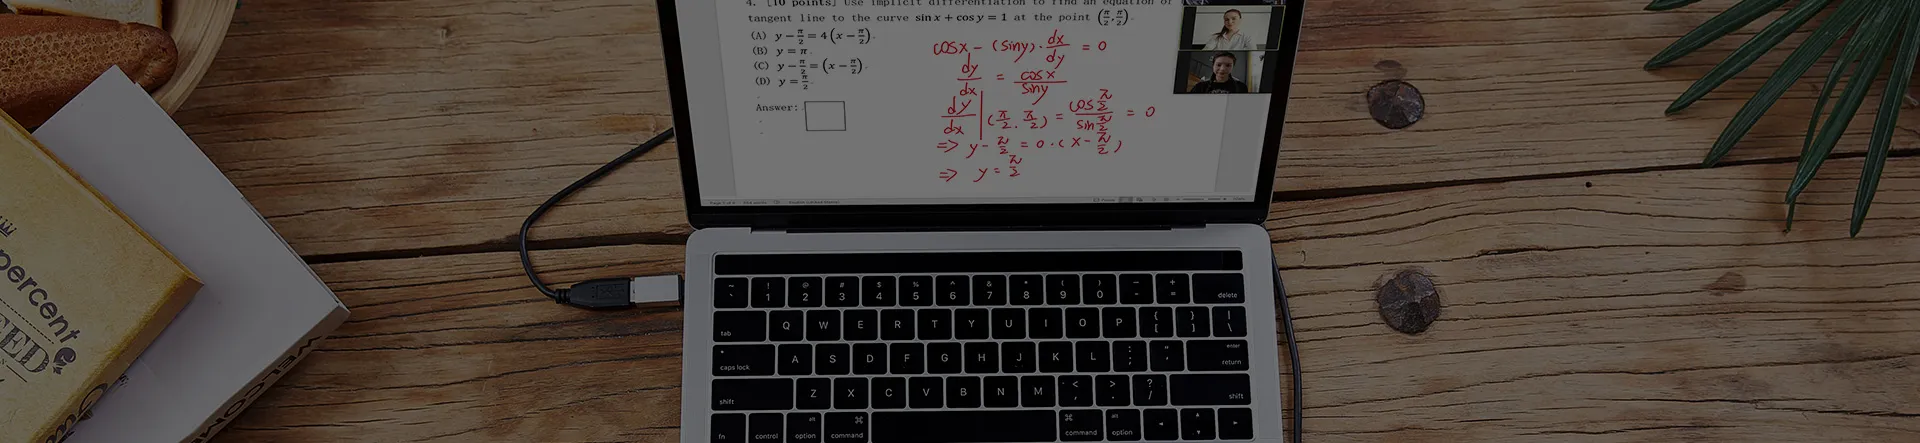 4. [10 points] Use implicit differentiation to find an equation of
tangent line to the curve sin x + cos y = 1 at the point (π/2, π/2).
(A) y − π/2 = 4 (x − π/2).
(B) y = π.
(C) y − π/2 = (x − π/2).
(D) y = π/2.
Answer:
cosx − (siny) · dx/dy = 0
dy/dx = cosx/siny
dy/dx | (π/2, π/2) = cos π/2 / sin π/2 = 0
=> y − π/2 = 0 · (x − π/2)
=> y = π/2
percent
WELCOME
~ ` ! 1 @ 2 # 3 $ 4 % 5 ^ 6 & 7 * 8 ( 9 ) 0 — - + = delete
tab Q W E R T Y U I O P { [ } ] | \
caps lock A S D F G H J K L : ; " ' enter return
shift Z X C V B N M < , > . ? / shift
fn control alt option ⌘ command ⌘ command alt option